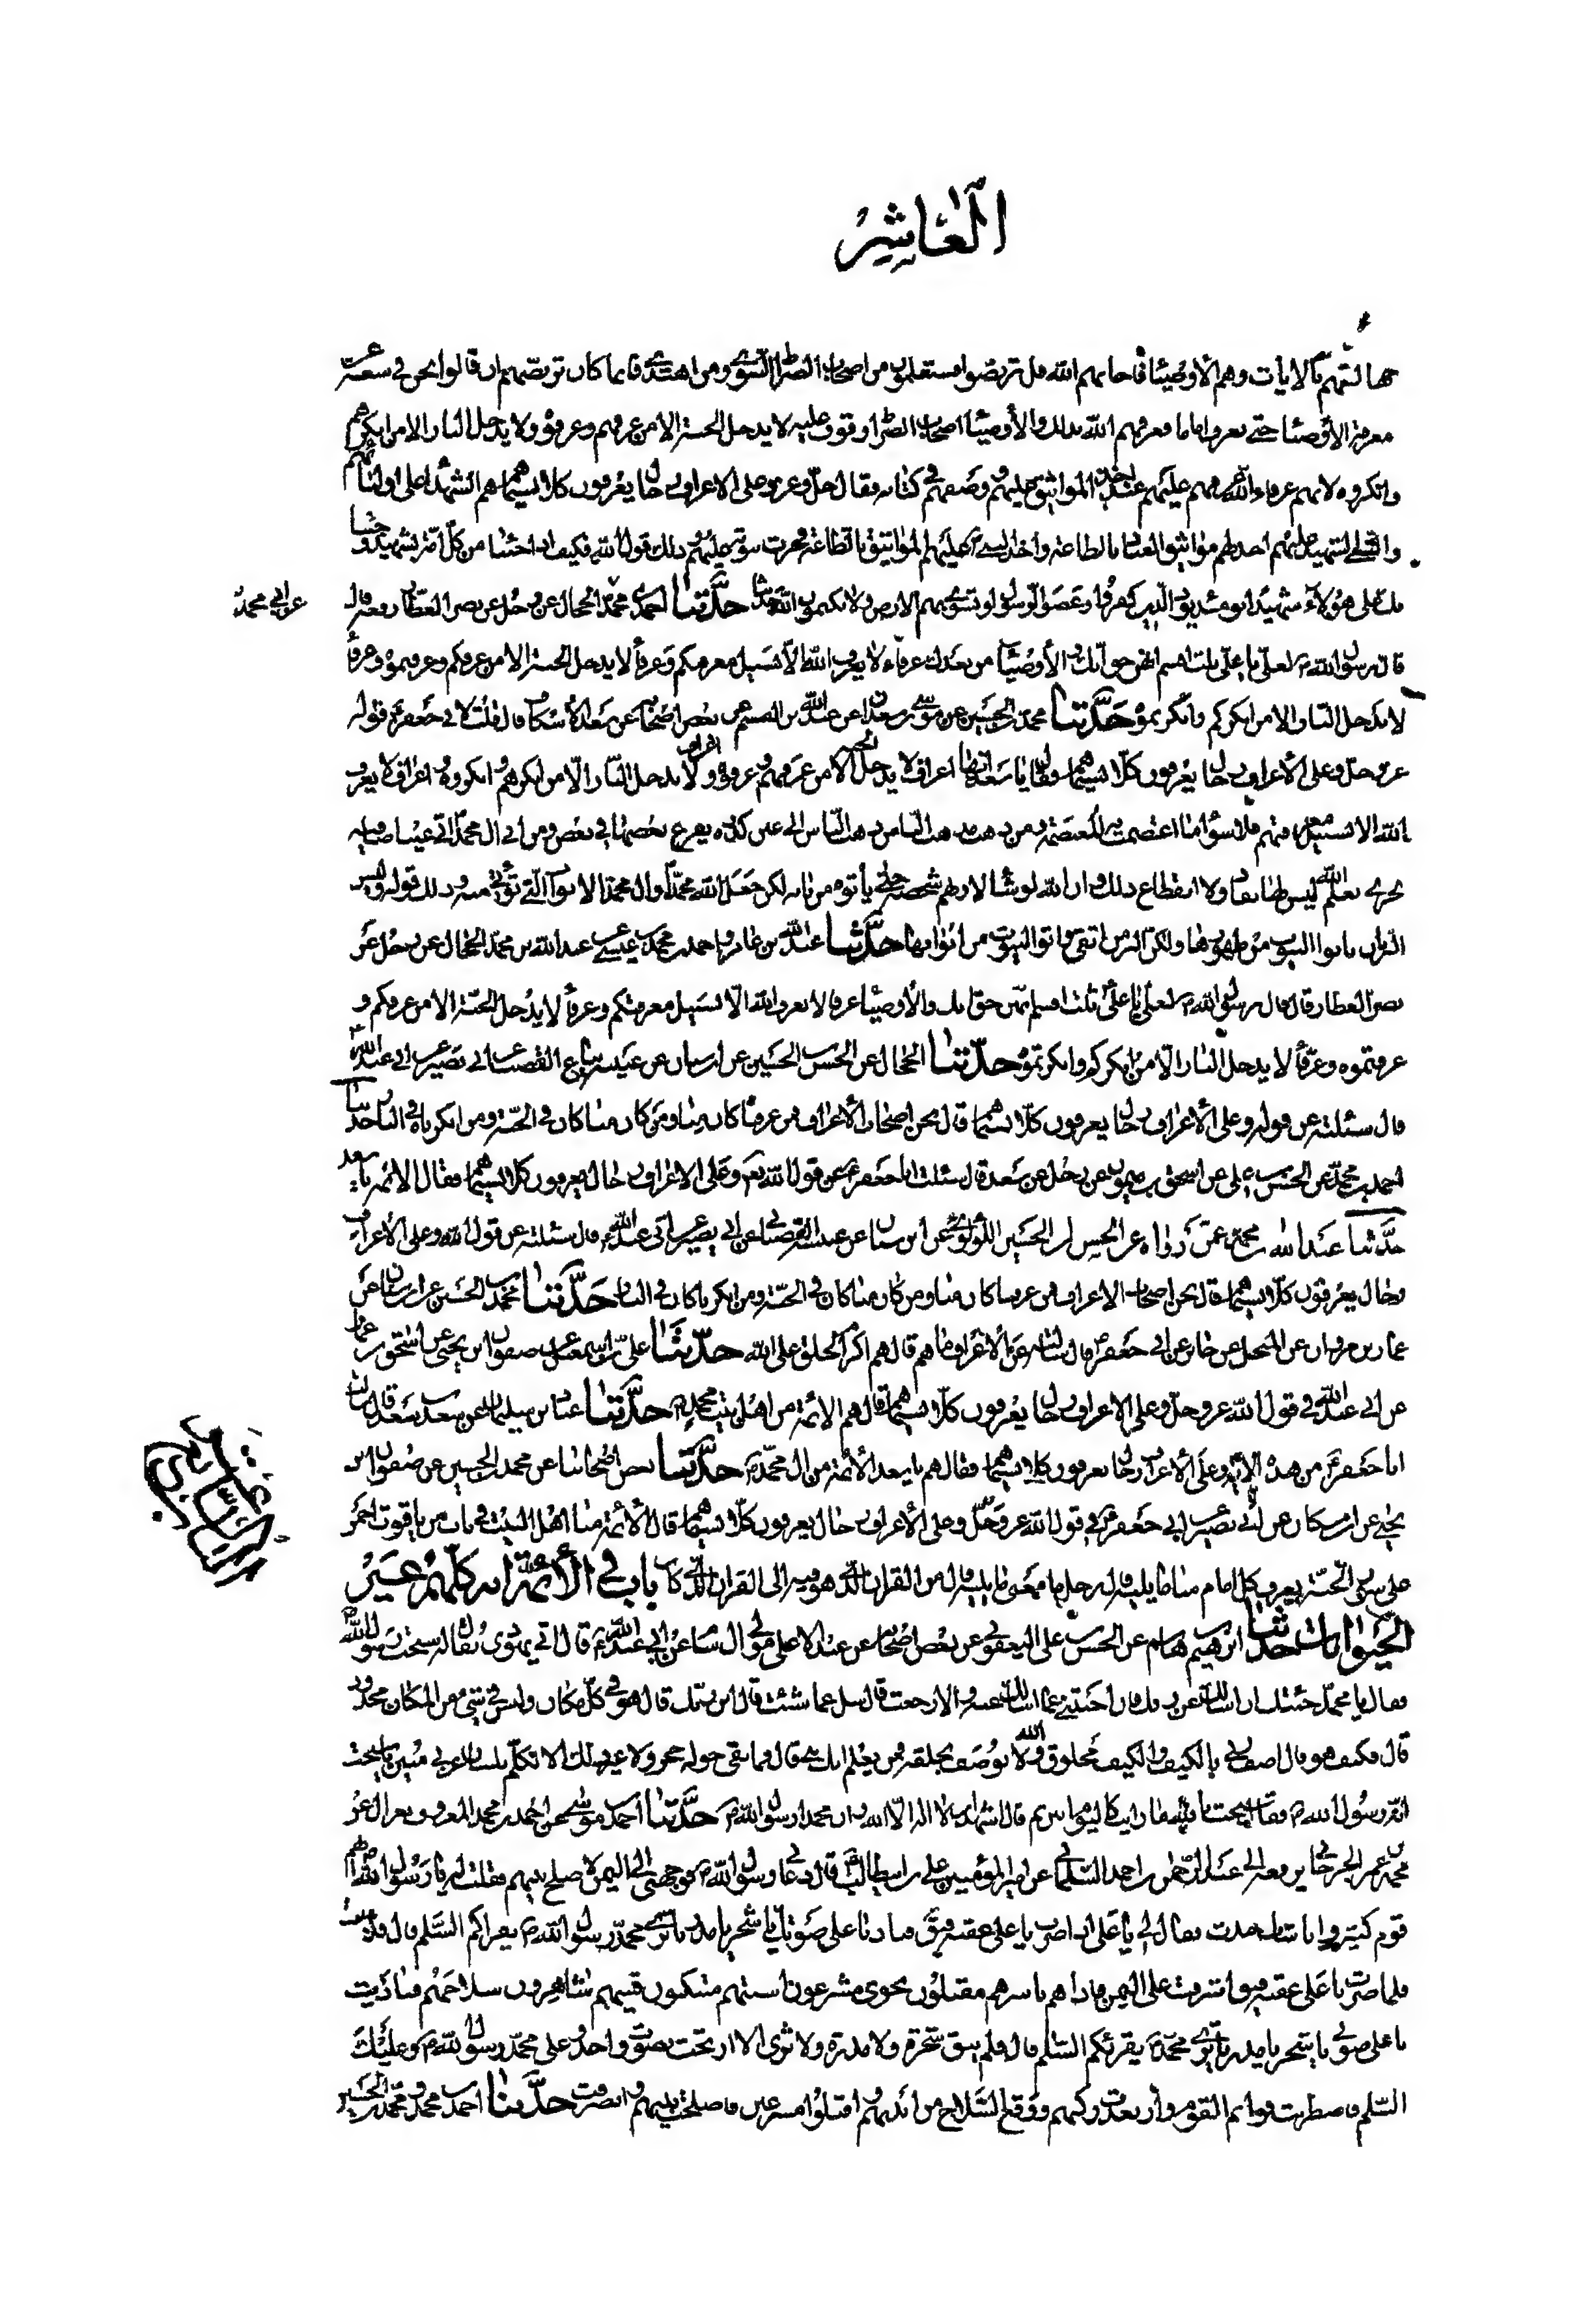 العاشر
جهالتهم بالايات وهم الأوصياء فاجابهم الله قل تربصوا فستعلمون من اصحاب الصراط السوي ومن اهتدى فانما كان تربصهم ان قالوا نحن في سعة عن
معرفة الأوصياء حتى يعرفوا اماما فعرفهم الله بذلك والأوصياء اصحاب الصراط وقوف عليه لا يدخل الجنة الا من عرفهم وعرفوه ولا يدخل النار الا من انكرهم
وانكروه لانهم عرفاء الله عرفهم عليهم عند اخذه المواثيق عليهم ووصفهم في كتابه فقال جل وعز وعلى الاعراف رجال يعرفون كلا بسيماهم هم الشهداء على اوليائهم
والنبي الشهيد عليهم اخذ لهم مواثيق العباد بالطاعة واخذ النبي عليهم المواثيق بالطاعة فجرت نبوته عليهم وذلك قول الله فكيف اذا جئنا من كل امة بشهيد وجئنا
بك على هؤلاء شهيدا يومئذ يود الذين كفروا وعصوا الرسول لو تسوى بهم الارض ولا يكتمون الله حديثا حدثنا احمد بن محمد الحجال عن رجل عن نصر العطار رفعه قال
عن ابي محمد
قال رسول الله لعلي يا علي ثلث اقسم انهن حق انك والأوصياء من بعدك عرفاء لا يعرف الله الا بسبيل معرفتكم وعرفاء لا يدخل الجنة الا من عرفكم وعرفتموه وعرفاء
لا يدخل النار الا من انكركم وانكرتموه حدثنا محمد بن الحسين عن موسى بن سعدان عن عبد الله بن القسم عن بعض اصحابه عن سعد الاسكاف قال قلت لابي جعفر قوله
عز وجل وعلى الأعراف رجال يعرفون كلا بسيماهم فقال يا سعد انها اعراف لا يدخل الجنة الا من عرفهم وعرفوه واعراف لا يدخل النار الا من انكرهم وانكروه واعراف لا يعرف
الله الا بسبيل معرفتهم فلا سواء ما اعتصمت به المعتصمة ومن ذهب مذهب الناس ذهب الناس الى عين كدرة يفرغ بعضها في بعض ومن اتى آل محمد اتى عينا صافية
تجري بعلم الله ليس لها نفاد ولا انقطاع ذلك وان الله لو شاء لاراهم شخصه حتى يأتوه من بابه لكن جعل الله محمدا وآل محمد الابواب التي تؤتى منه وذلك قوله وليس
البر بان تاتوا البيوت من ظهورها ولكن البر من اتقى واتوا البيوت من ابوابها حدثنا عبد الله بن عامر واحمد بن محمد بن عيسى عن عبد الله بن محمد الحجال عن رجل عن
نصر العطار قال قال رسول الله لعلي يا علي ثلث اقسم انهن حق انك والأوصياء عرفاء لا يعرف الله الا بسبيل معرفتكم وعرفاء لا يدخل الجنة الا من عرفكم و
عرفتموه وعرفاء لا يدخل النار الا من انكركم وانكرتموه حدثنا الحجال عن الحسن بن الحسين عن ابن سنان عن عتيبة بياع القصب عن ابي بصير عن ابي عبد الله
قال سئلته عن قوله وعلى الأعراف رجال يعرفون كلا بسيماهم قال نحن اصحاب الأعراف فمن عرفناه كان منا ومن كان منا كان في الجنة ومن انكرناه في النار حدثنا
احمد بن محمد عن الحسن بن علي عن اسحق بن ميمون عن رجل عن سعد قال سئلت ابا جعفر عن قول الله وعلى الاعراف رجال يعرفون كلا بسيماهم فقال الائمة يا سعد
حدثنا عبد الله بن محمد عمن رواه عن الحسن بن الحسين اللؤلؤي عن ابن سنان عن عتيبة القصباني عن ابي بصير عن ابي عبد الله قال سئلته عن قول الله وعلى الأعراف
رجال يعرفون كلا بسيماهم قال نحن اصحاب الاعراف فمن عرفنا كان منا ومن كان منا كان في الجنة ومن انكرنا كان في النار حدثنا محمد بن الحسين عن ابن سنان عن
عمار بن مروان عن المنخل عن جابر عن ابي جعفر قال سالته عن الأعراف ما هم قال هم اكرم الخلق على الله حدثنا علي بن اسمعيل عن صفوان بن يحيى عن اسحق بن عمار
عن ابي عبد الله في قول الله عز وجل وعلى الاعراف رجال يعرفون كلا بسيماهم قال هم الائمة من اهل بيت محمد حدثنا عباد بن سليمان عن سعد بن سعد قال سالت
ابا جعفر عن هذه الاية وعلى الأعراف رجال يعرفون كلا بسيماهم فقال هم يا سعد الأئمة من آل محمد حدثنا بعض اصحابنا عن محمد بن الحسين عن صفوان بن
يحيى عن ابن مسكان عن ابي بصير عن ابي جعفر في قول الله عز وجل وعلى الأعراف رجال يعرفون كلا بسيماهم قال الأئمة منا اهل البيت في باب من ياقوت احمر
على سور الجنة يعرف كل امام منا ما يليه قال رجل ما معنى ما يليه قال من القرن الذي هو فيه الى القرن الذي كان باب في الأئمة انه كلمهم غير
الحيوانات حدثنا ابرهيم بن هاشم عن الحسن بن علي اليعقوبي عن بعض اصحابه عن عبد الاعلى مولى آل سام عن ابي عبد الله قال اتى يهودي يقال له سبخت رسول الله
فقال يا محمد جئتك اسالك عن ربك فان اجبتني عما اسالك عنه والا رجعت قال سل عما شئت قال اين ربك قال هو في كل مكان وليس في شيء من المكان محدود
قال فكيف هو قال اصف ربي بالكيف والكيف مخلوق والله لا يوصف بخلقه فمن يعلم انك نبي قال فما بقي حوله حجر ولا غير ذلك الا تكلم بلسان عربي مبين يا سبخت
انه رسول الله فقال سبخت تالله ما رايت كاليوم ابين ثم قال اشهد ان لا اله الا الله وان محمدا رسول الله حدثنا احمد بن موسى عن احمد بن محمد المعروف بغزال عن
محمد بن عمر الجرجاني يرفعه الى عبد الرحمن بن احمد السلماني عن امير المؤمنين علي بن ابيطالب قال دعاني رسول الله فوجهني الى اليمن لاصلح بينهم فقلت له يا رسول الله انهم
قوم كثير وانا شاب حدث فقال لي يا علي اذا صرت باعلى عقبة فيق فناد باعلى صوتك يا شجر يا مدر يا ثرى محمد رسول الله يقرئكم السلم قال فذهبت
فلما صرت باعلى عقبة فيق اشرفت على اليمن فاذا هم باسرهم مقبلون نحوي مشرعون اسنتهم متنكبون قسيهم شاهرون سلاحهم فناديت
باعلى صوتي يا شجر يا مدر يا ثرى محمد يقرئكم السلم قال فلم يبق شجرة ولا مدرة ولا ثرى الا ارتجت بصوت واحد وعلى محمد رسول الله وعليك
السلم فاضطربت قوائم القوم وارتعدت ركبهم ووقع السلاح من ايديهم واقبلوا مسرعين فاصلحت بينهم وانصرفت حدثنا احمد بن محمد ومحمد بن الحسين